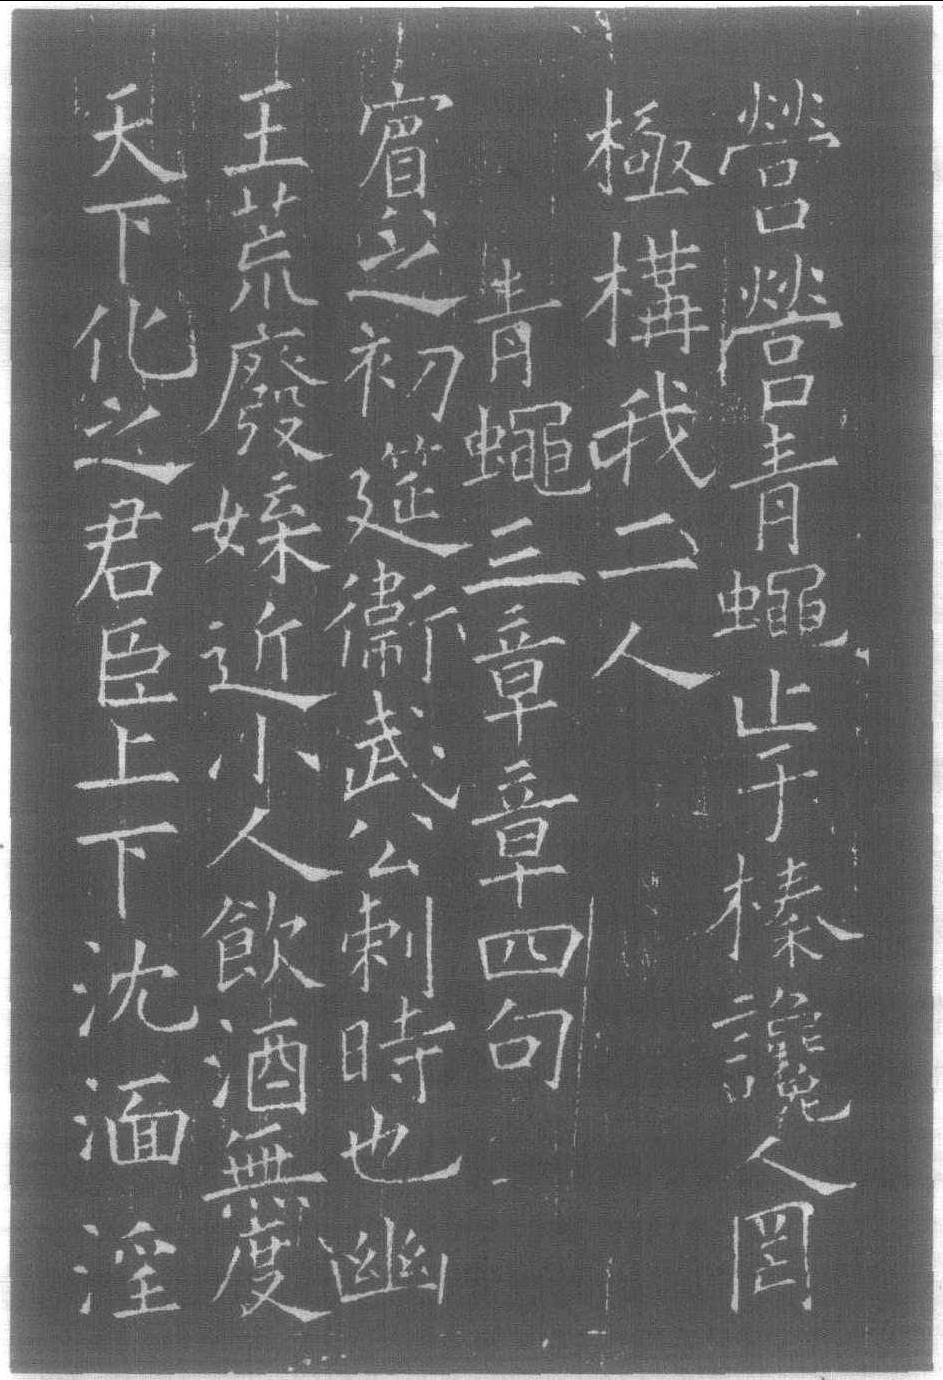 營營青蠅止于榛讒人罔
極構我二人
青蠅三章章四句
賔之初筵衞武公刺時也幽
王荒廢媟近小人飲酒無度
天下化之君臣上下沈湎淫